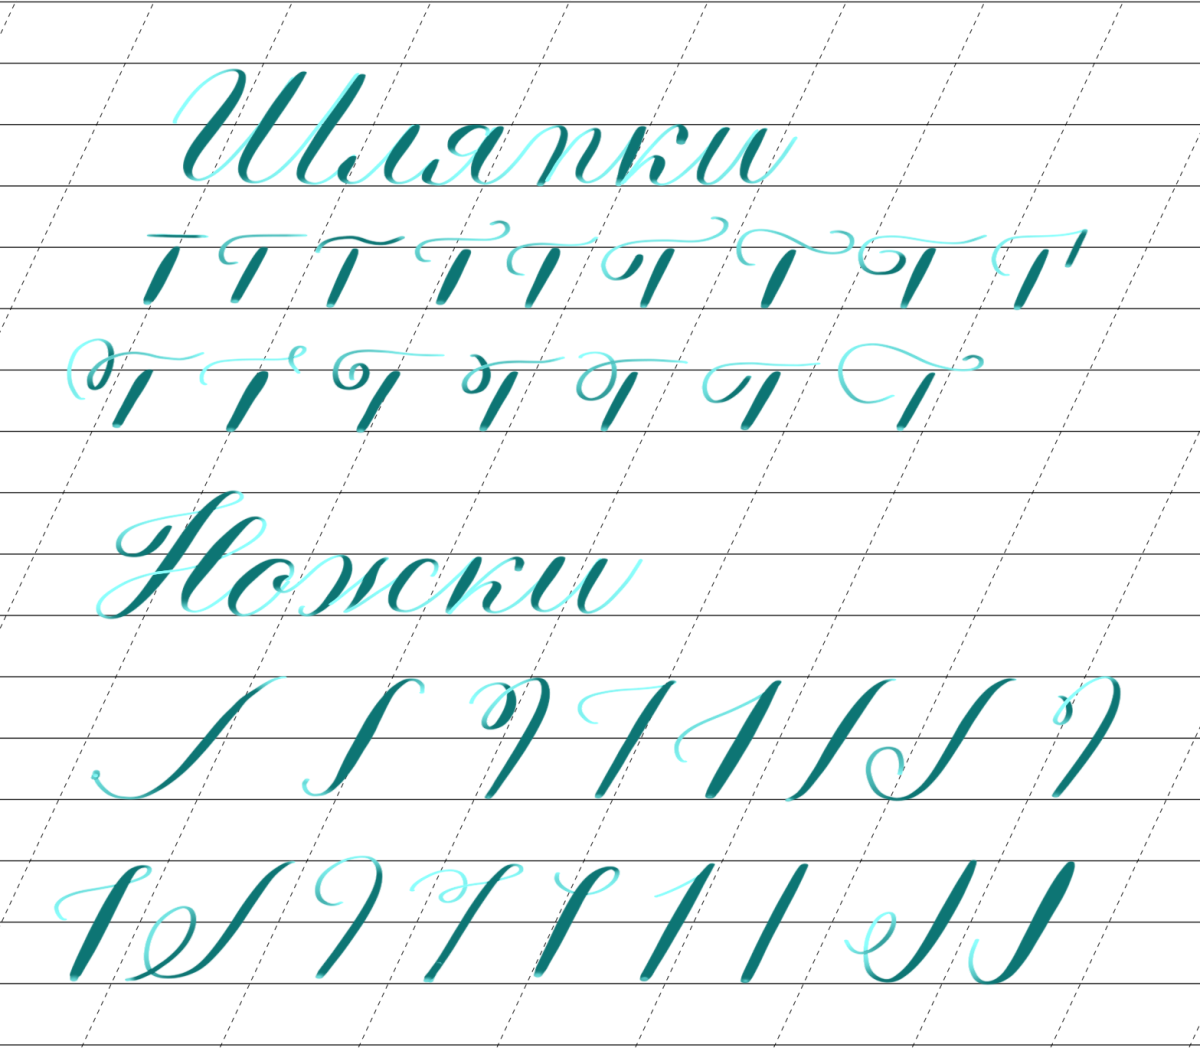 Шляпки
Ножки